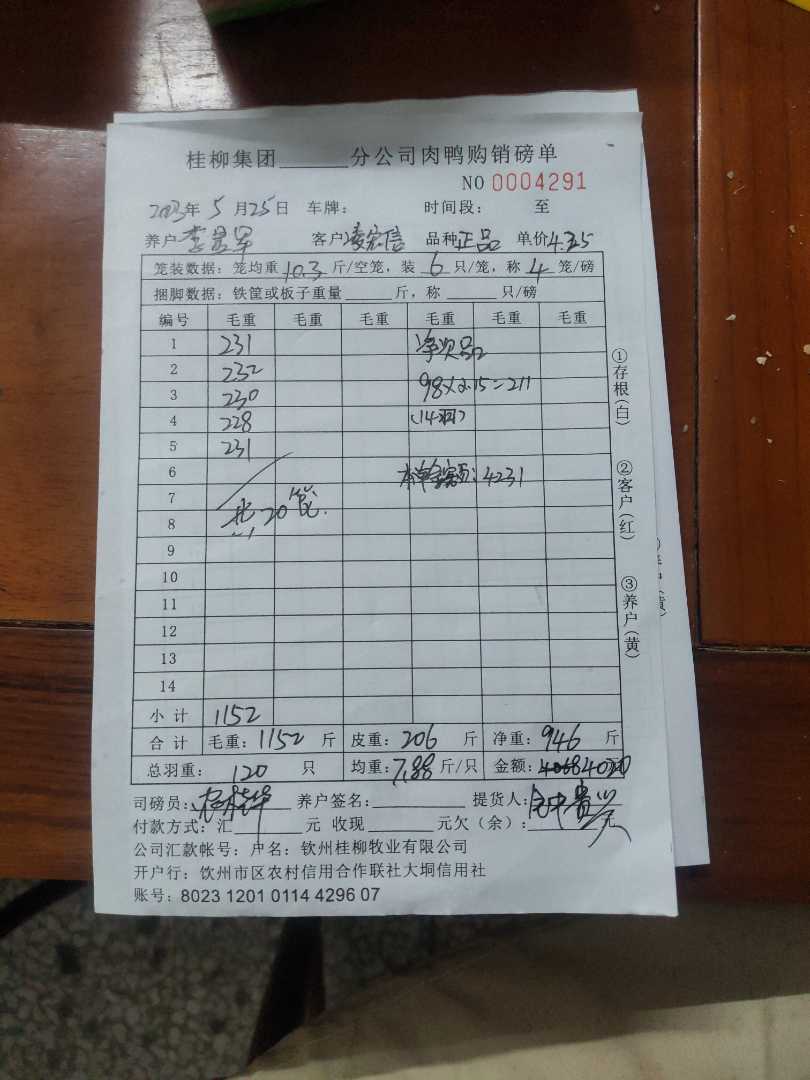 桂柳集团______分公司肉鸭购销磅单
NO 0004291
2023年 5 月 25 日 车牌: 时间段: 至
养户 客户 凌宏信 品种 正品 单价 4.25
笼装数据: 笼均重 10.3 斤/空笼, 装 6 只/笼, 称 4 笼/磅
捆脚数据: 铁筐或板子重量______斤, 称______只/磅
编号 毛重 毛重 毛重 毛重 毛重 毛重
1 231 净次品
2 232
3 230 98×2.15=211
4 228 (14羽)
5 231
6 本单金额: 4231
7
8 共20笼.
9
10
11
12
13
14
小计 1152
合计 毛重: 1152 斤 皮重: 206 斤 净重: 946 斤
总羽重: 120 只 均重: 7.88 斤/只 金额: 4020
司磅员: 养户签名: 提货人:
付款方式: 汇______元 收现______元欠(余): ______元
公司汇款帐号: 户名: 钦州桂柳牧业有限公司
开户行: 钦州市区农村信用合作联社大垌信用社
账号: 8023 1201 0114 4296 07
①存根(白)
②客户(红)
③养户(黄)